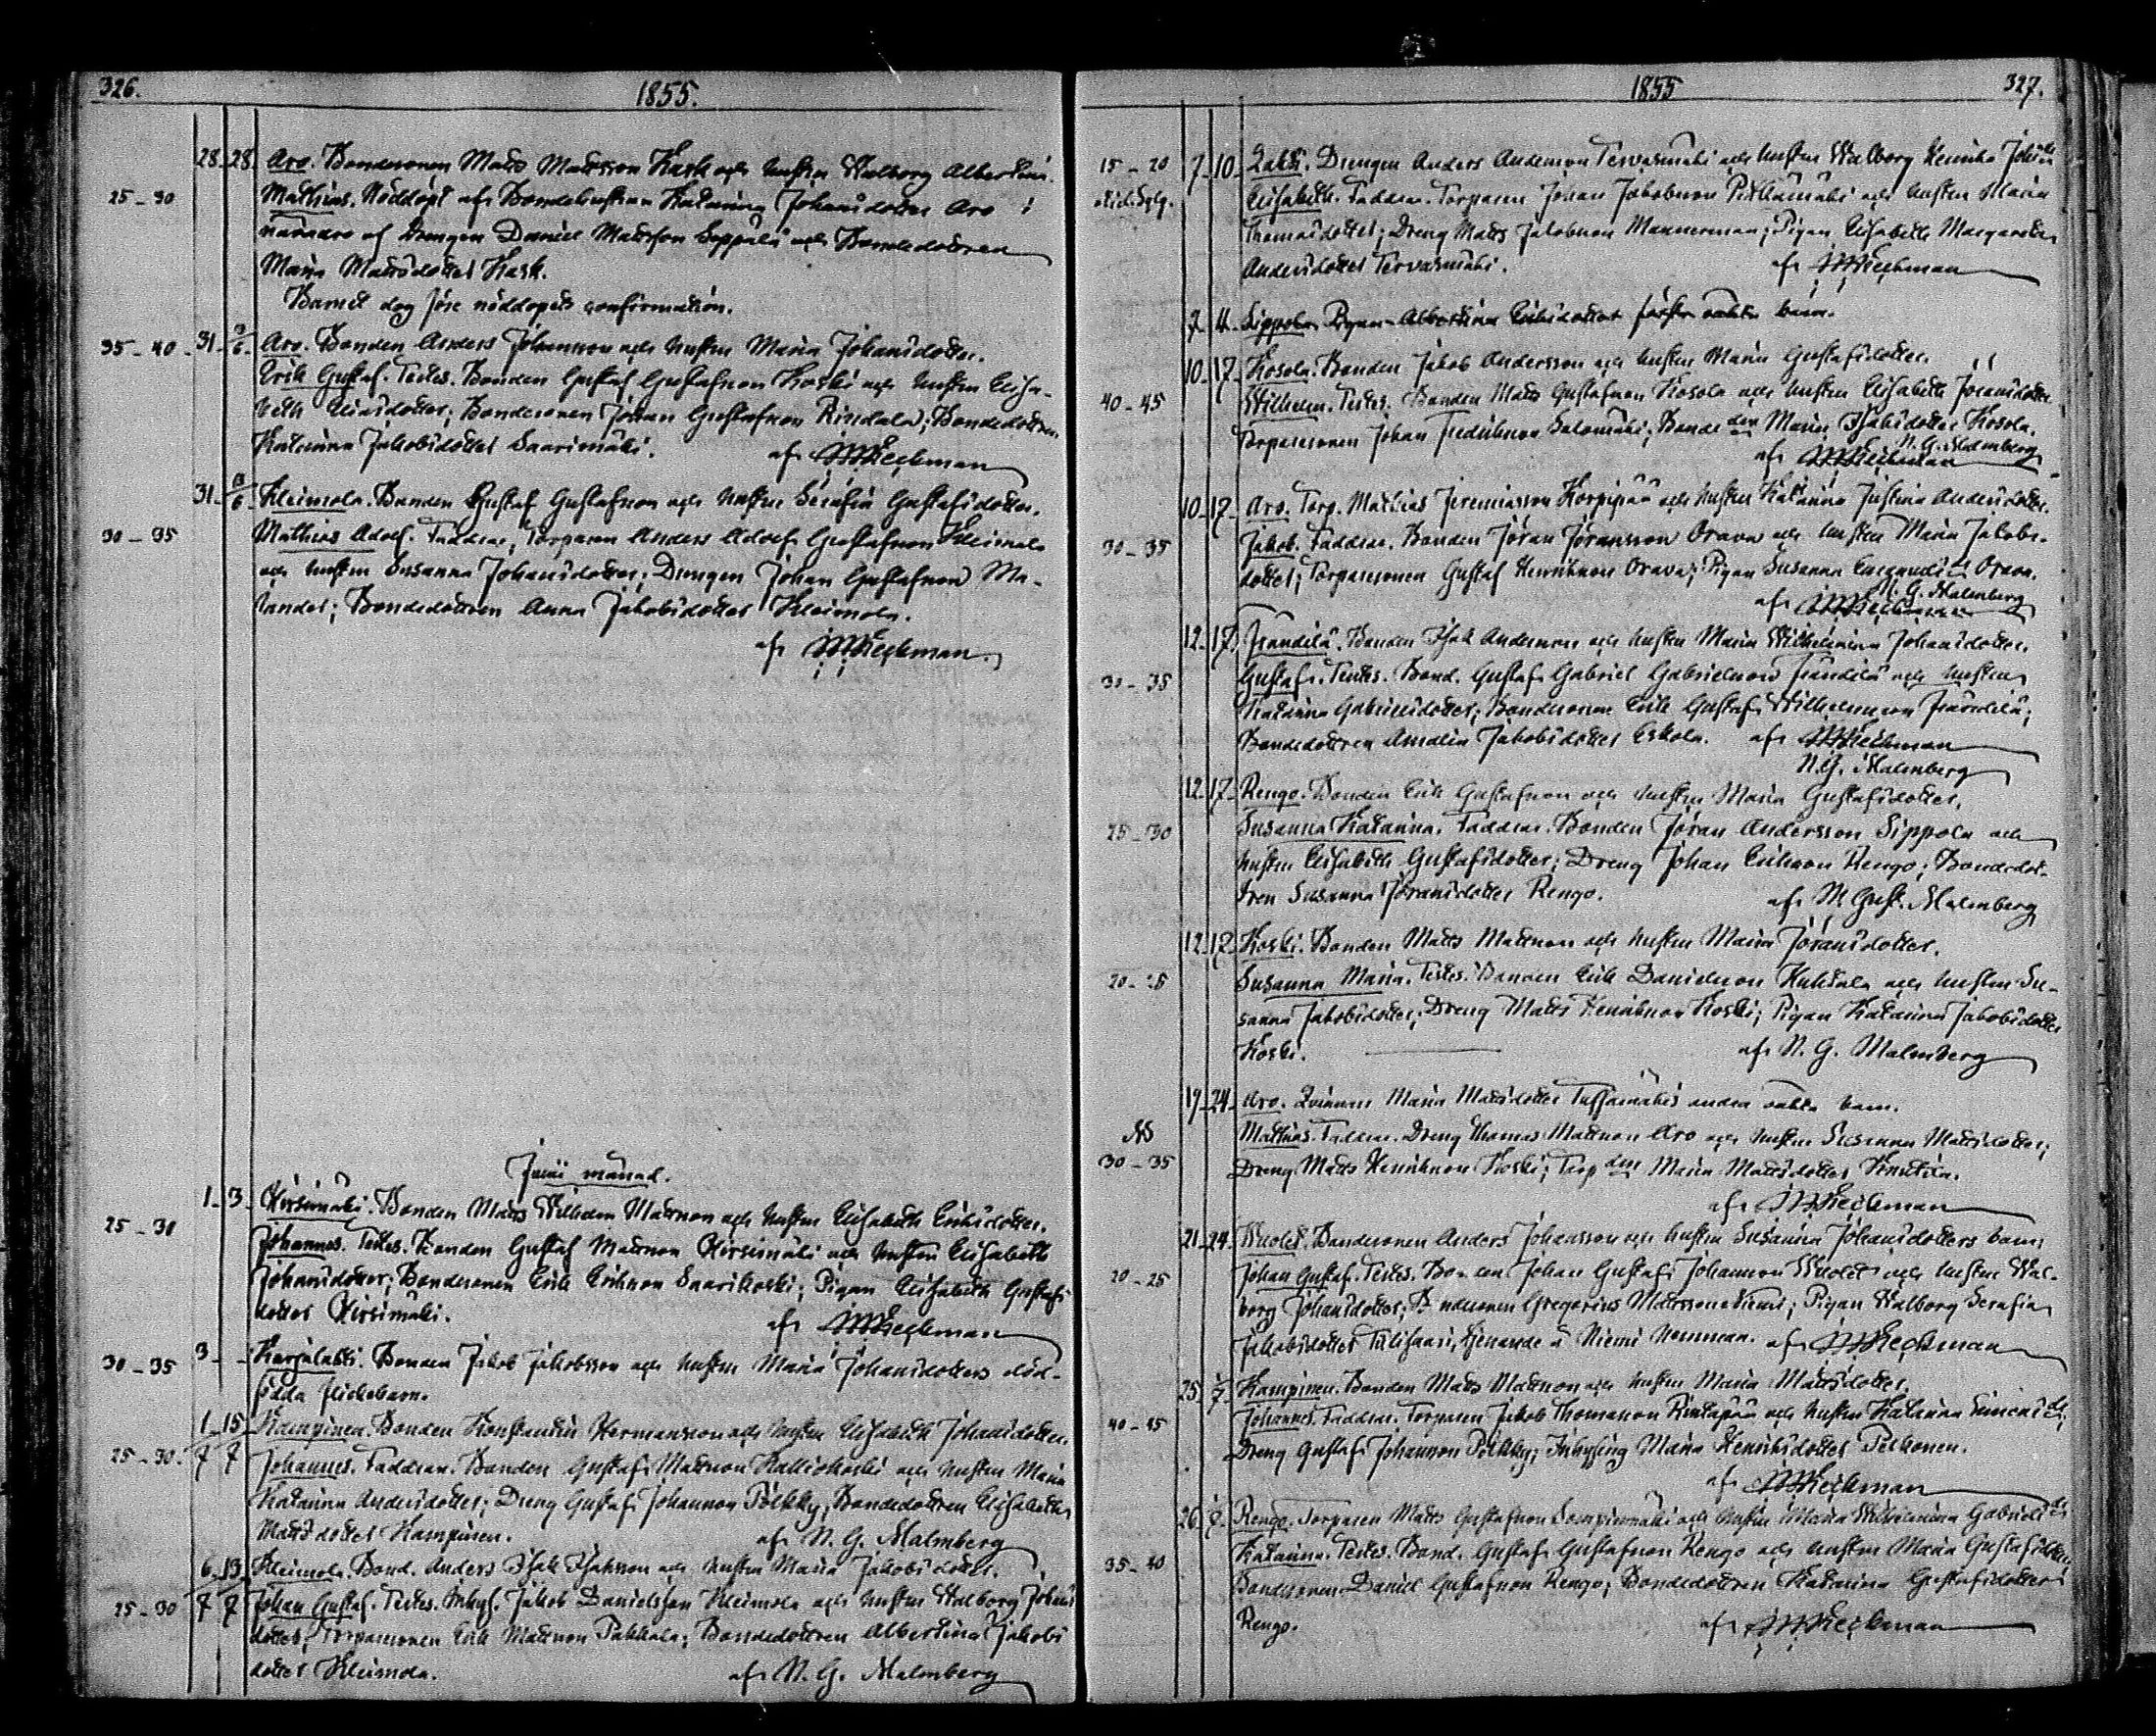 326.
1855.
28. 28. Aro. Bondesonen Matts Mattsson Kask och hustru Walborg Albertina.
25-30 Mathias. Nöddöpt af Bondehustrun Katarina Johansdotter Aro i
närvaro af Drengen Daniel Mattsson Seppälä och Bondedottren
Maria Mattsdotter Kask.
Barnet dog före nöddopets confirmation.
35-40 31. 3/6 Aro. Bonden Anders Johansson och hustru Maria Johansdotter.
Erik Gustaf. Testes. Bonden Gustaf Gustafsson Koski och hustru Elisa-
beth Eliasdotter; Bondesonen Johan Gustafsson; Bondedottren
Katarina Jakobsdotter Saarimäki. af
31. /6 Kleimola. Bonden Gustaf Gustafsson och hustru Serafia Gustafsdotter.
30-35 Mathias Adolf. Faddrar, Torparen Anders Adolf Gustafsson Kleimola
och hustru Susanna Johansdotter; Drengen Johan Gustafsson Ma-
; Bondedottren Anna Jakobsdotter Kleimola.
af
Junii månad.
1. 3. Hirsimäki. Bonden Matts Wilhelm Mattsson och hustru Elisabeth Eriksdotter.
25-30 Johannes. Testes. Bonden Gustaf Mattsson Hirsimäki och hustru Elisabeth
Johansdotter; Bondesonen Erik Eriksson Saarikoski; Pigan Elisabeth Gustafs-
dotter Hirsimäki. af
30-35 3. - Karjalahti. Bonden Jakob Jakobsson och hustru Maria Johansdotters död-
födda flickebarn.
1 15 Kampinen. Bonden Konstantin Hermansson och hustru Elisabeth Johansdotter.
25-30. 7 7 Johannes. Faddrar. Bonden Gustaf Mattsson Kalliokoski och hustru Maria
Katarina Andersdotter; Dreng Gustaf Johansson Pölkky; Bondedottren Elisabeth
Mattsdotter Kampinen. af N. G. Malmberg
6. 13. Kleimola. Bond. Anders Isak Isaksson och hustru Maria Jakobsdotter.
25-30 7 7 Johan Gustaf. Testes. Inhys. Jakob Danielsson Kleimola och hustru Walborg Johans-
dotter; Torparesonen Erik Mattsson Pakkala; Bondedottren Albertina Jakobs-
dotter Kleimola. af N. G. Malmberg
1855
327.
15-20 7. 10. Lahti. Drengen Anders Andersson Tervasmäki och hustru Walborg Henrika
Elisabeth. Faddrar. Torparen Johan Jakobsson och hustru Maria
Thomasdotter; Dreng Matts Jakobsson Mannerman; Pigan Elisabeth Margareta
Andersdotter Tervasmäki. af
7. Sippola Pigan Albertina Eriksdotter första oäkta barn.
10. 17. Kosola. Bonden Jakob Andersson och hustru Maria Gustafsdotter.
40-45 Wilhelm. Testes. Bonden Matts Gustafsson Kosola och hustru Elisabeth Jöransdotter
Torparesonen Johan Fredriksson Salomäki; Bonde dtr Maria Isaksdotter Kosola.
af N. G. Malmberg
10. 17. Aro. Torp. Mathias Jeremiasson Korpipää och hustru Katarina Justina Andersdotter.
30-35 Jakob. Faddrar. Bonden Jöran Jöransson Orava och hustru Maria Jakobs-
dotter; Torparesonen Gustaf Henriksson Orava; Pigan Susanna Orava.
af N. G. Malmberg
12. 17. Frändilä. Bonden Isak Andersson och hustru Maria Wilhelmina Johansdotter.
30-35 Gustaf. Testes. Bond. Gustaf Gabriel Gabrielsson Frändilä och hustru
Katarina Gabrielsdotter; Bondesonen Erik Gustaf Wilhelmsson Frändilä;
Bondedottren Amalia Jakobsdotter Eskola. af
N. G. Malmberg
12. 17. Rengo. Bonden Erik Gustafsson och hustru Maria Gustafsdotter.
25-30 Susanna Katarina. Faddrar. Bonden Jöran Andersson Sippola och
hustru Elisabeth Gustafsdotter; Dreng Johan Eriksson Rengo; Bondedot-
tren Susanna Jöransdotter Rengo. af N. Gust. Malmberg
12. 17. Koski. Bonden Matts Mattsson och hustru Maria Jöransdotter.
Susanna Maria. Testes. Bonden Erik Danielsson Huhtala och hustru Su-
sanna Jakobsdotter; Dreng Matts Henriksson Koski; Pigan Katarina Jakobsdotter
Koski. af N. G. Malmberg
19. 24. Aro. Qvinnan Maria Mattsdotter andra oäkta barn.
Mathias. Faddrar. Dreng Thomas Mattsson Aro och hustru Susanna Mattsdotter;
30-35 Dreng Matts Henriksson Koski; Torp dtr Maria Mattsdotter.
af
21. 24. Wuolet. Bondesonen Anders Johansson och hustru Susanna Johansdotters barn
20-25 Johan Gustaf. Testes. Bonden Johan Gustaf Johansson Wuolet och hustru Wal-
borg Johansdotter; Bondesonen Gregorius Mattsson Niemi; Pigan Walborg Serafia
Jakobsdotter, tjenande å Niemi hemman. af
25. /7 Kampinen. Bonden Matts Mattsson och hustru Maria Mattsdotter.
40-45 Johannes. Faddrar. Torparen Jakob Thomasson Rintapää och hustru Katarina
Dreng Gustaf Johansson Pölkky; Inhysing Maria Henriksdotter Pelkonen.
af
26. Rengo. Torparen Matts Gustafsson och hustru Maria Wilhelmina Gabriels
35-40 Katarina. Testes. Bond. Gustaf Gustafsson Rengo och hustru Maria Gustafsdotter
Bondesonen Daniel Gustafsson Rengo; Bondedottren Katarina Gustafsdotter
Rengo. af